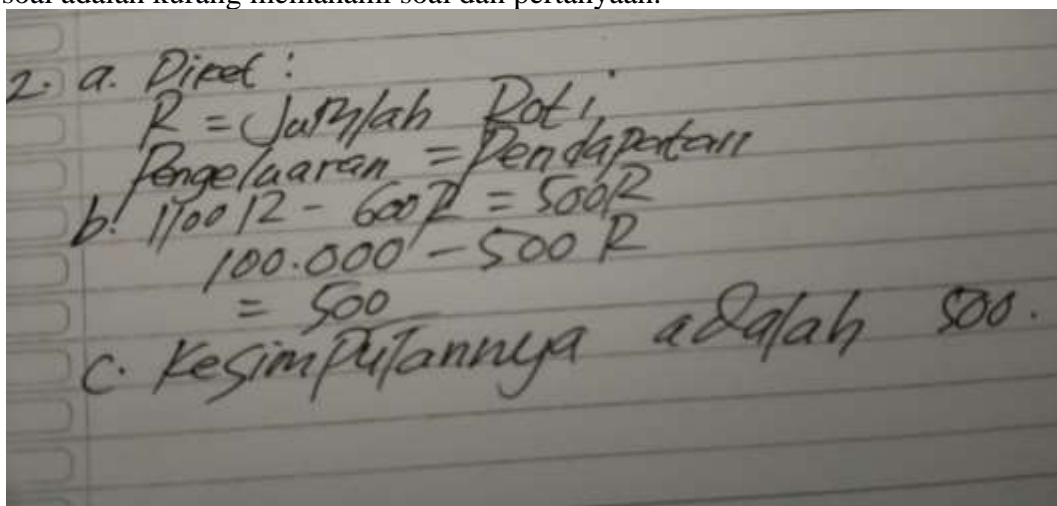 soal adalah kurang memahami soal dan pertanyaan.
2. a. Diket :
R = Jumlah Roti
Pengeluaran = Pendapatan
b. 1100 R - 600 R = 500 R
100.000 - 500 R
= 500
c. Kesimpulannya adalah 500.